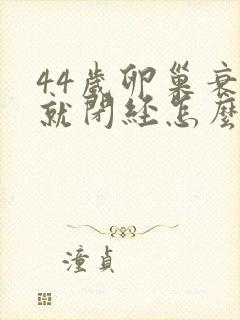 44歲卵巢衰
就閉經怎麼
潼貞